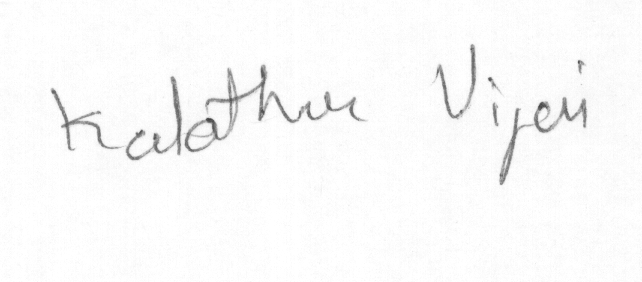 Kalathur Vijeri